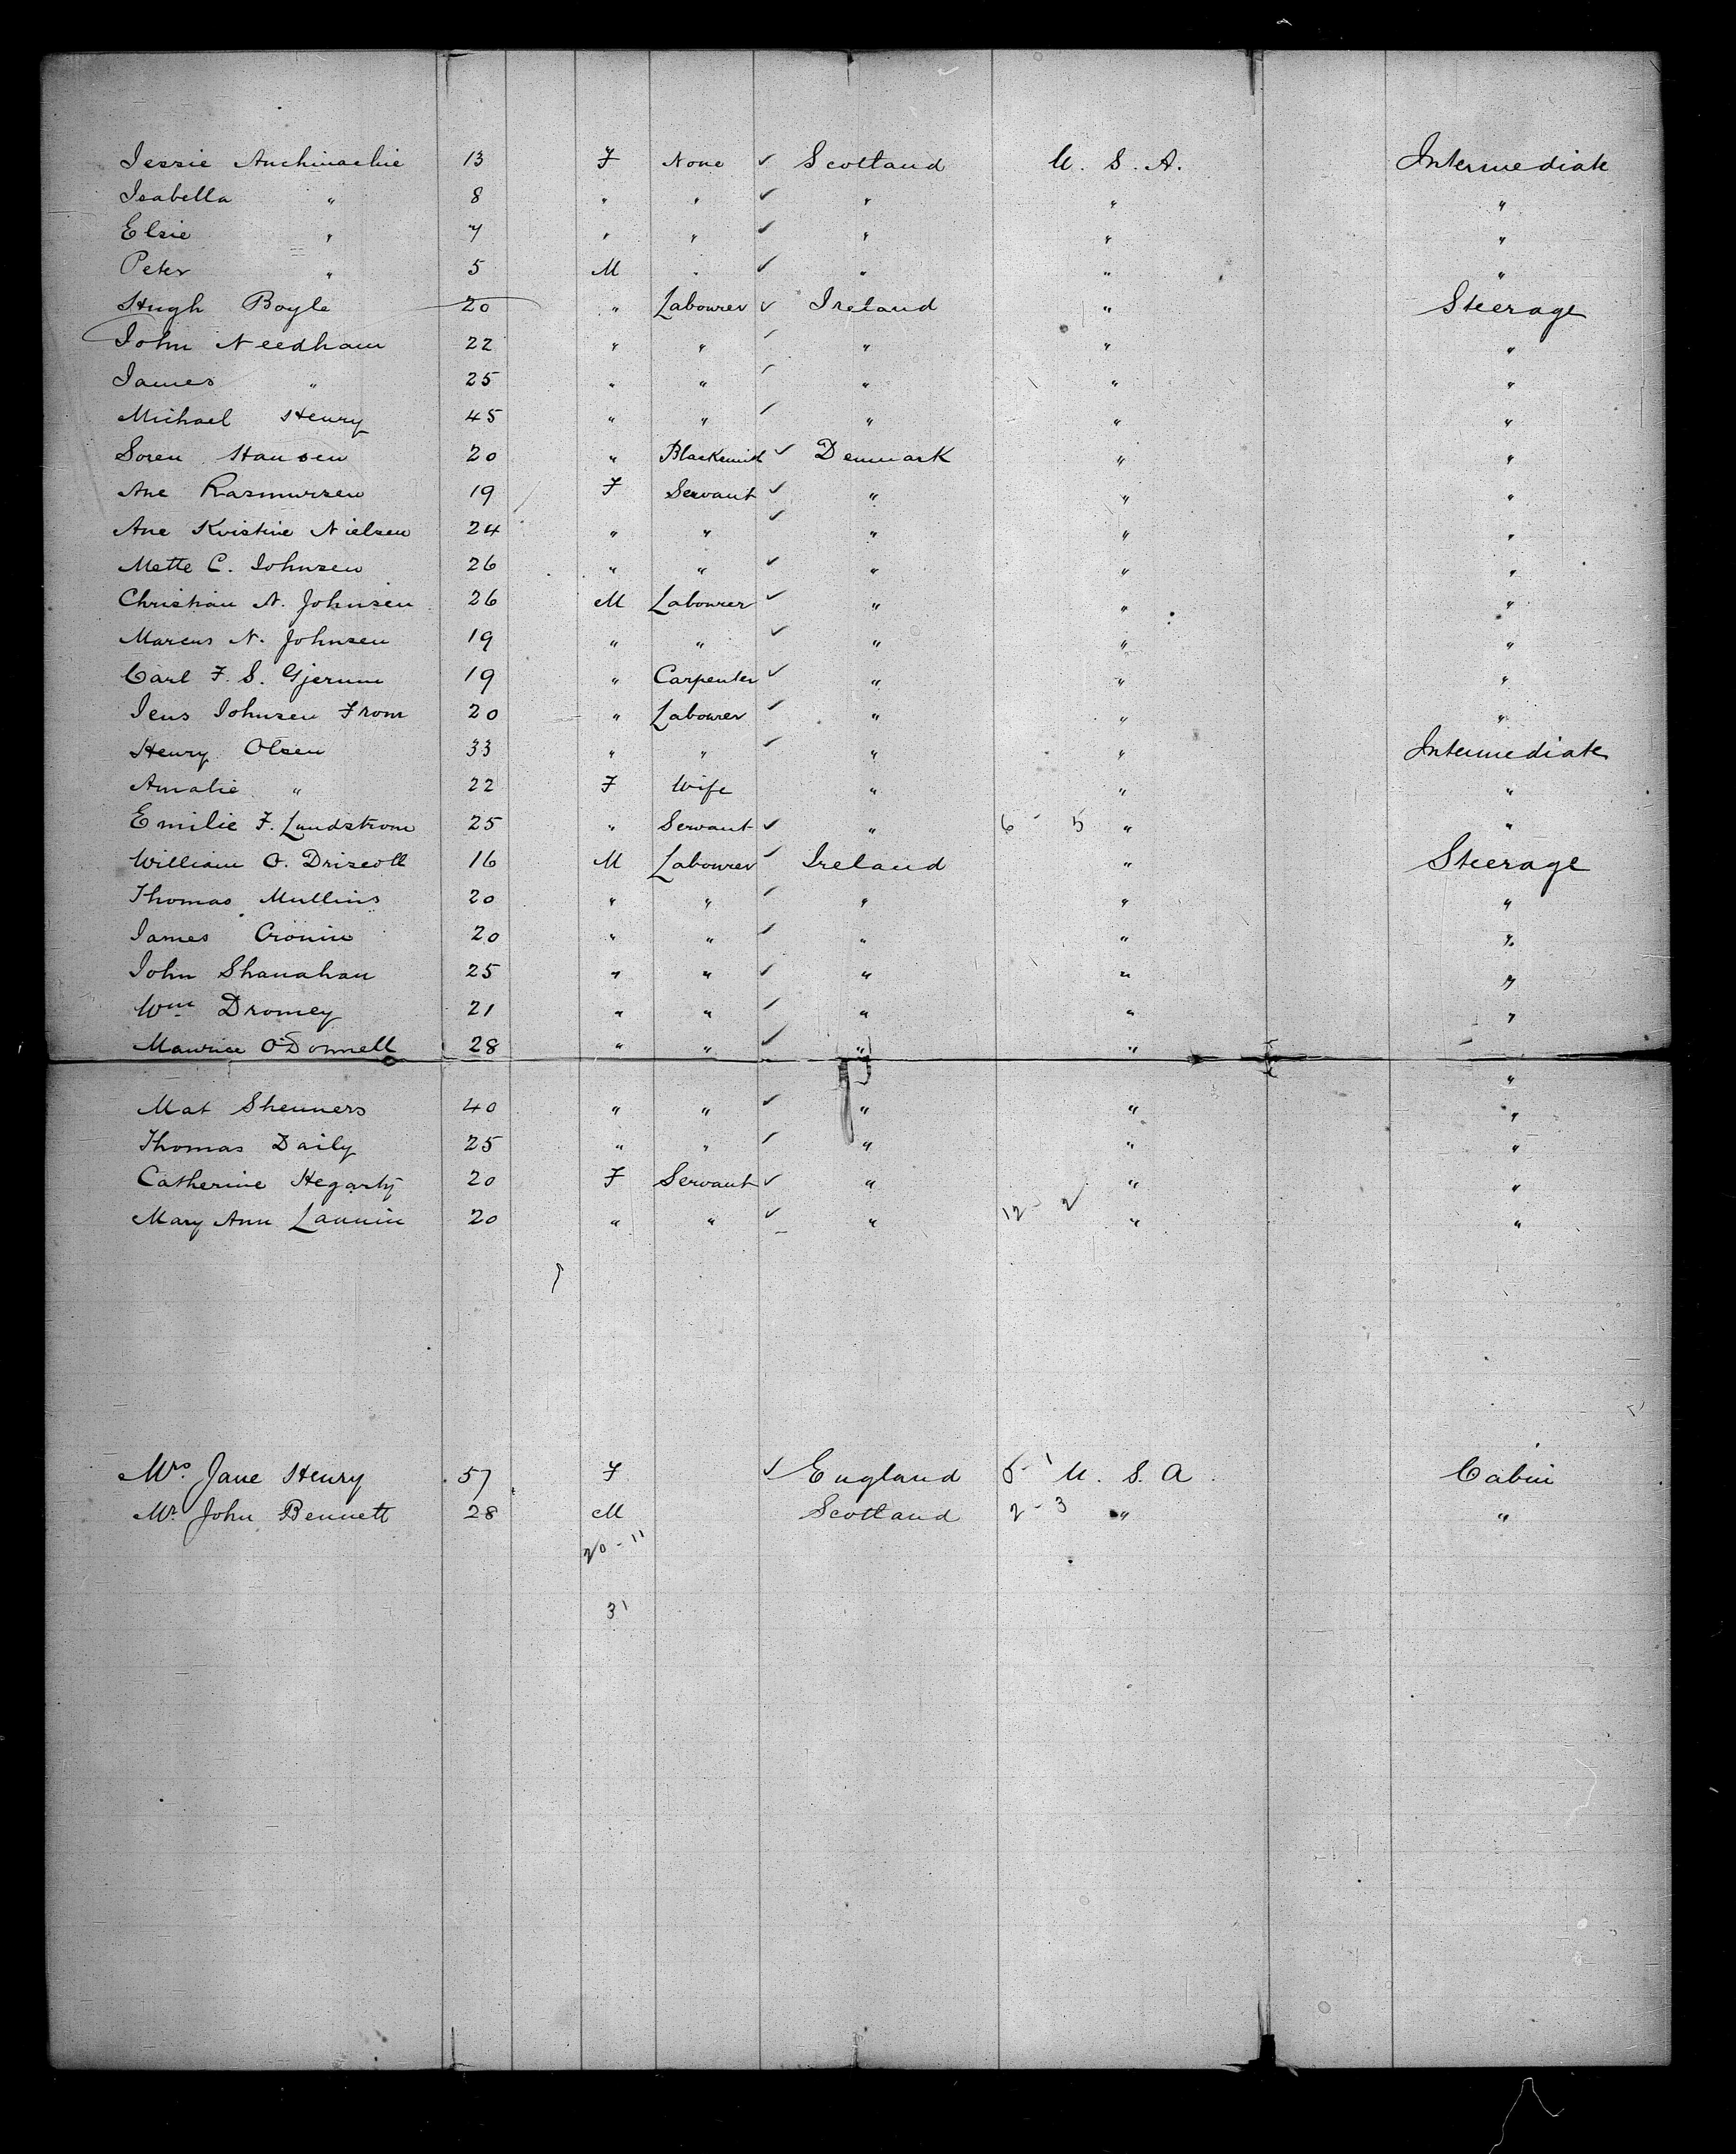 Jessie Auchinachie 13 F None ✓ Scotland U. S. A. Intermediate
Isabella " 8 " " ✓ " " "
Elsie " 7 " " ✓ " " "
Peter " 5 M " ✓ " " "
Hugh Boyle 20 " Labourer ✓ Ireland " Steerage
John Needham 22 " " ✓ " " "
James " 25 " " ✓ " " "
Michael Henry 45 " " ✓ " " "
Soren Hansen 20 " Blacksmith ✓ Denmark " "
Ane Rasmussen 19 F Servant ✓ " " "
Ane Kristine Nielsen 24 " " ✓ " " "
Mette C. Johnsen 26 " " ✓ " " "
Christian N. Johnsen 26 M Labourer ✓ " " "
Marcus N. Johnsen 19 " " ✓ " " "
Carl F. S. Gjerum 19 " Carpenter ✓ " " "
Jens Johnsen From 20 " Labourer ✓ " " "
Henry Olsen 33 " " ✓ " " Intermediate
Amalie " 22 F Wife " " "
Emilie F. Lundstrom 25 " Servant ✓ " 6 - 5 " "
William O. Driscoll 16 M Labourer ✓ Ireland " Steerage
Thomas Mullins 20 " " ✓ " " "
James Cronin 20 " " ✓ " " "
John Shanahan 25 " " ✓ " " "
Wm Dromey 21 " " ✓ " " "
Maurice O'Donnell 28 " " ✓ " " "
Mat Shenners 40 " " ✓ " " "
Thomas Daily 25 " " ✓ " " "
Catherine Hegarty 20 F Servant ✓ " " "
Mary Ann Launin 20 " " ✓ " 12 - 2 " "
Mrs. Jane Henry 57 F ✓ England 5 - 1 U. S. A. Cabin
Mr. John Bennett 28 M Scotland 2 - 3 " "
20 - 11
31